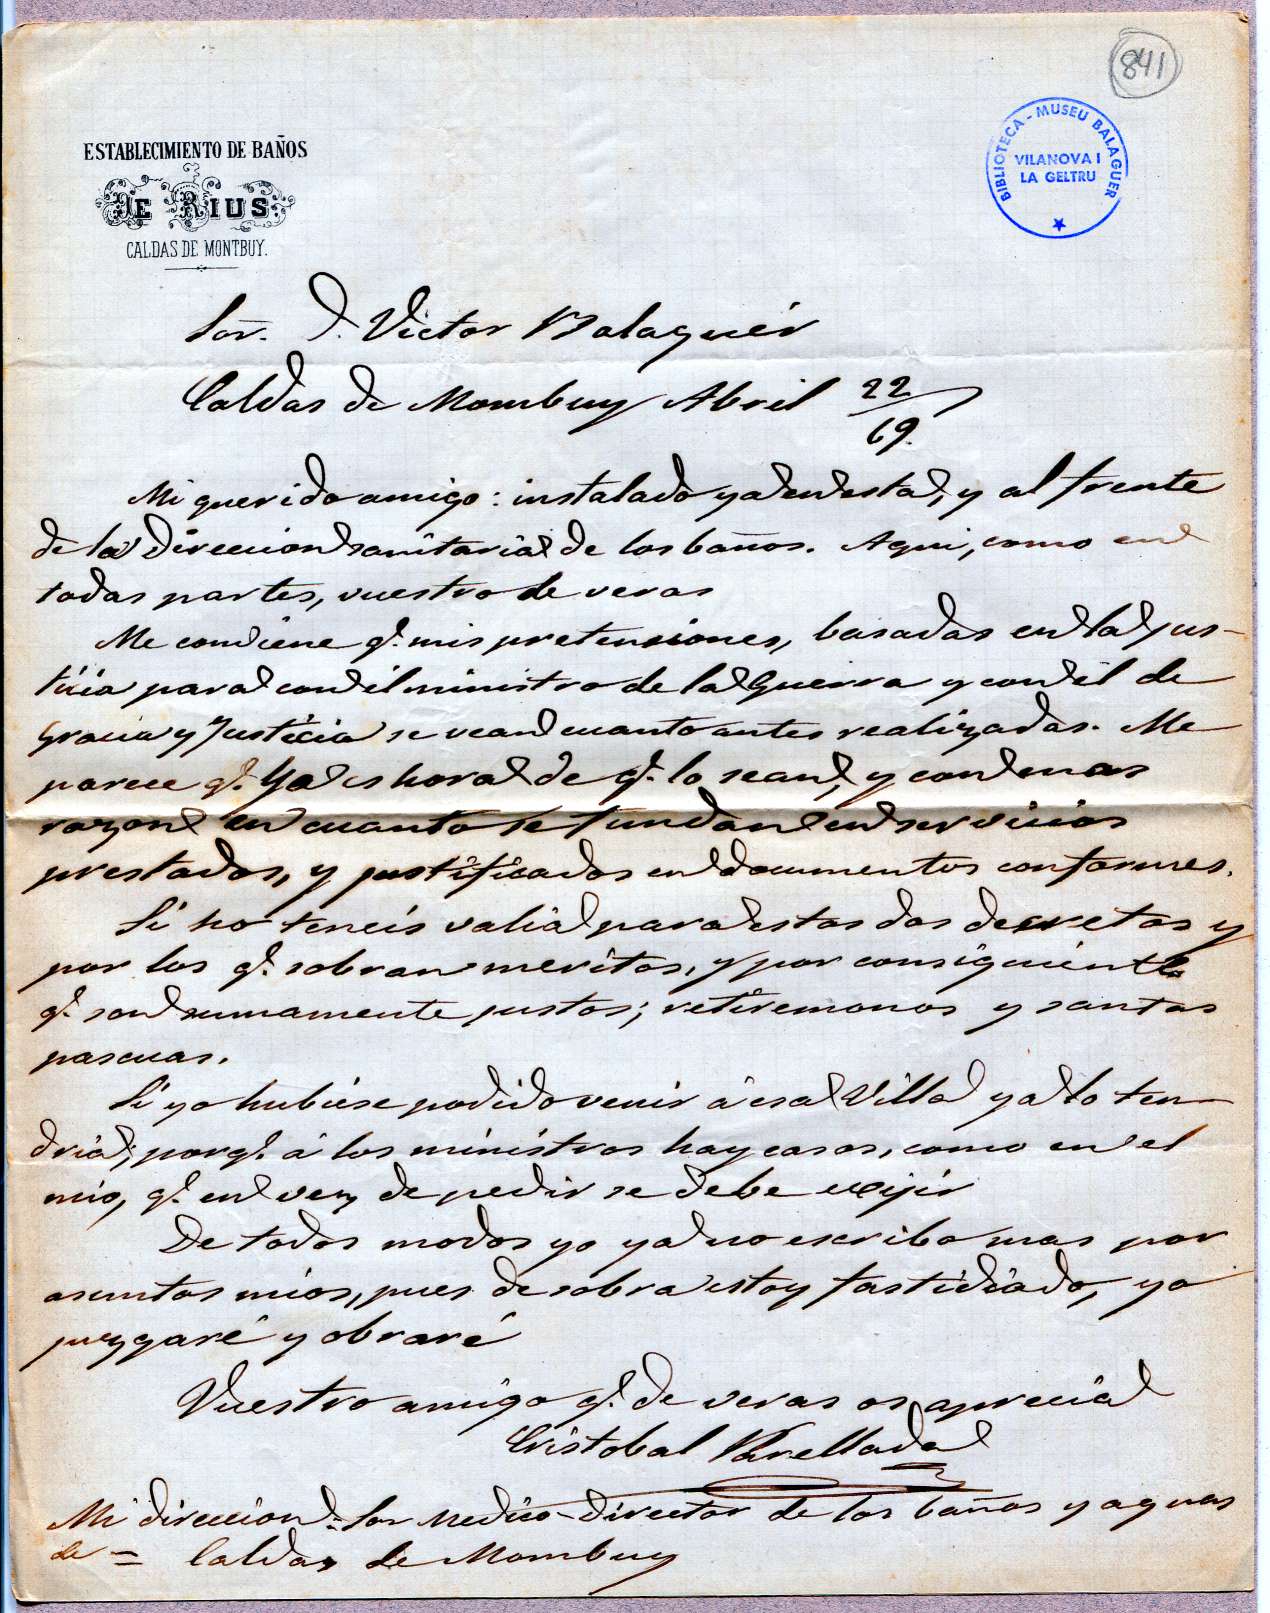 841
BIBLIOTECA - MUSEU BALAGUER
VILANOVA I
LA GELTRU
ESTABLECIMIENTO DE BAÑOS
DE RIUS
CALDAS DE MONTBUY.
Sor. D. Victor Balaguér
Caldas de Mombuy Abril 22/69.
Mi querido amigo: instalado ya en esta, y al frente
de la direccion sanitaria de los baños. Aqui, como en
todas partes, vuestro de veras
Me conviene q.e mis pretensiones, basadas en la jus-
ticia para con el ministro de la Guerra y con el de
Gracia y Justicia se vean cuanto antes realizadas. Me
parece q.e ya es hora de q.e lo sean, y con mas
razon en cuanto se fundan en servicios
prestados, y justificados en documentos conformes.
Si no teneis valia para estos dos decretos y
por los q.e sobran meritos, y por consiguiente
q.e son sumamente justos; retiremonos y santas
pascuas.
Si yo hubiése podido venir á esa Villa ya lo ten-
dria; porq.e á los ministros hay casos, como en el
mio, q.e en vez de pedir se debe exijir
De todos modos yo ya no escribo mas por
asuntos mios, pues de sobra estoy fastidiado, yo
juzgaré y obraré
Vuestro amigo q.e de veras os aprecia
Cristobal Parellada
Mi direccion = Sor Medico-director de los baños y aguas
de = Caldas de Mombuy